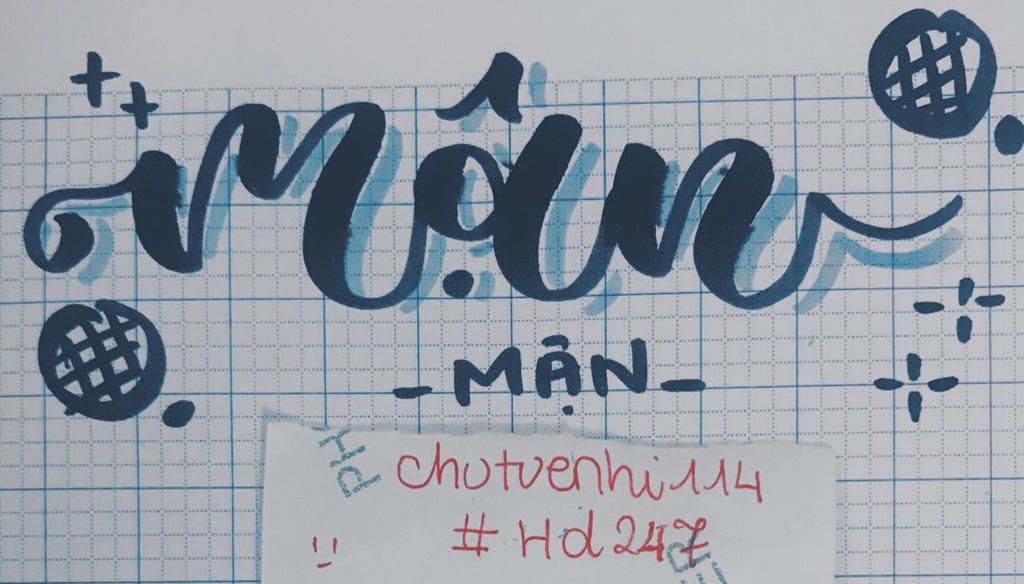 mận
- MẬN -
Hd
chutuenhi114
# Hd247
Hd